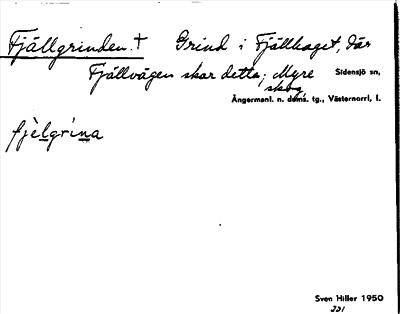 Fjällgrinden.† Grind i Fjällhaget, där
Fjällvägen skar detta; Myre
skog
Sidensjö sn,
Ångermanl. n. doms. tg., Västernorrl. l.
fjèlgrìna
Sven Hiller 1950
331